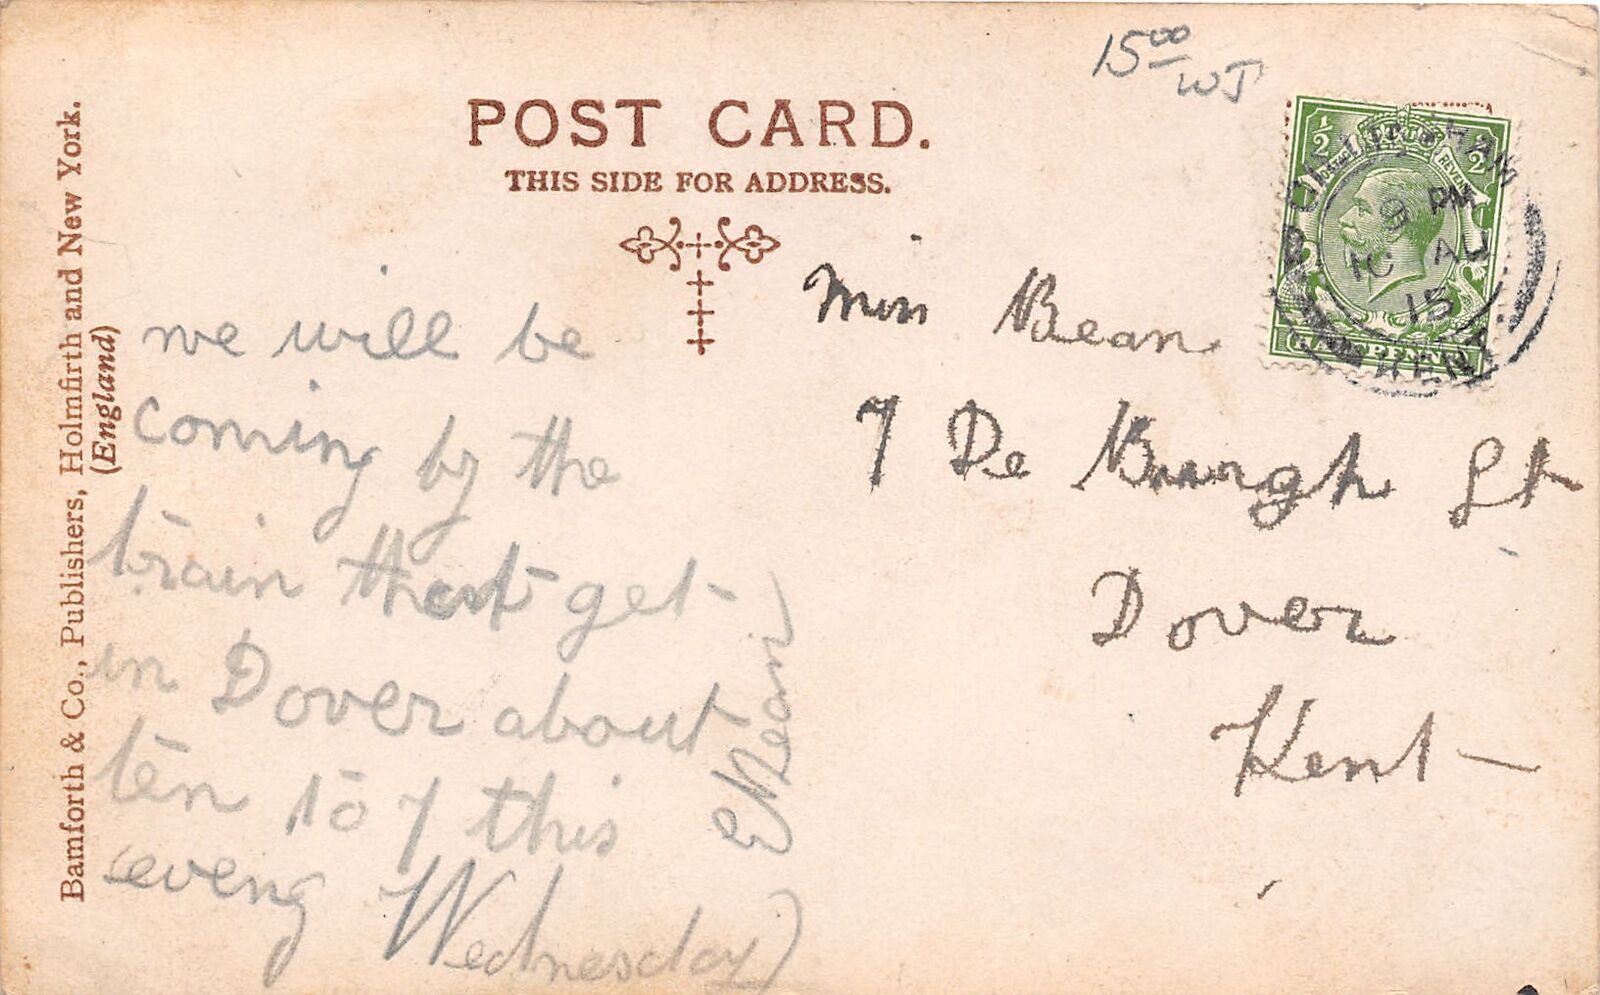 15⁰⁰
WJ
POST CARD.
THIS SIDE FOR ADDRESS.
Bamforth & Co., Publishers, Holmfirth and New York.
(England)
we will be
coming by the
train that get
in Dover about
ten to 7 this
eveng Wednesday
E Bean
Miss Bean
7 De Burgh St
Dover
Kent
½ ½
HALFPENNY
GILLINGHAM
9 PM
10 AU
15
KENT